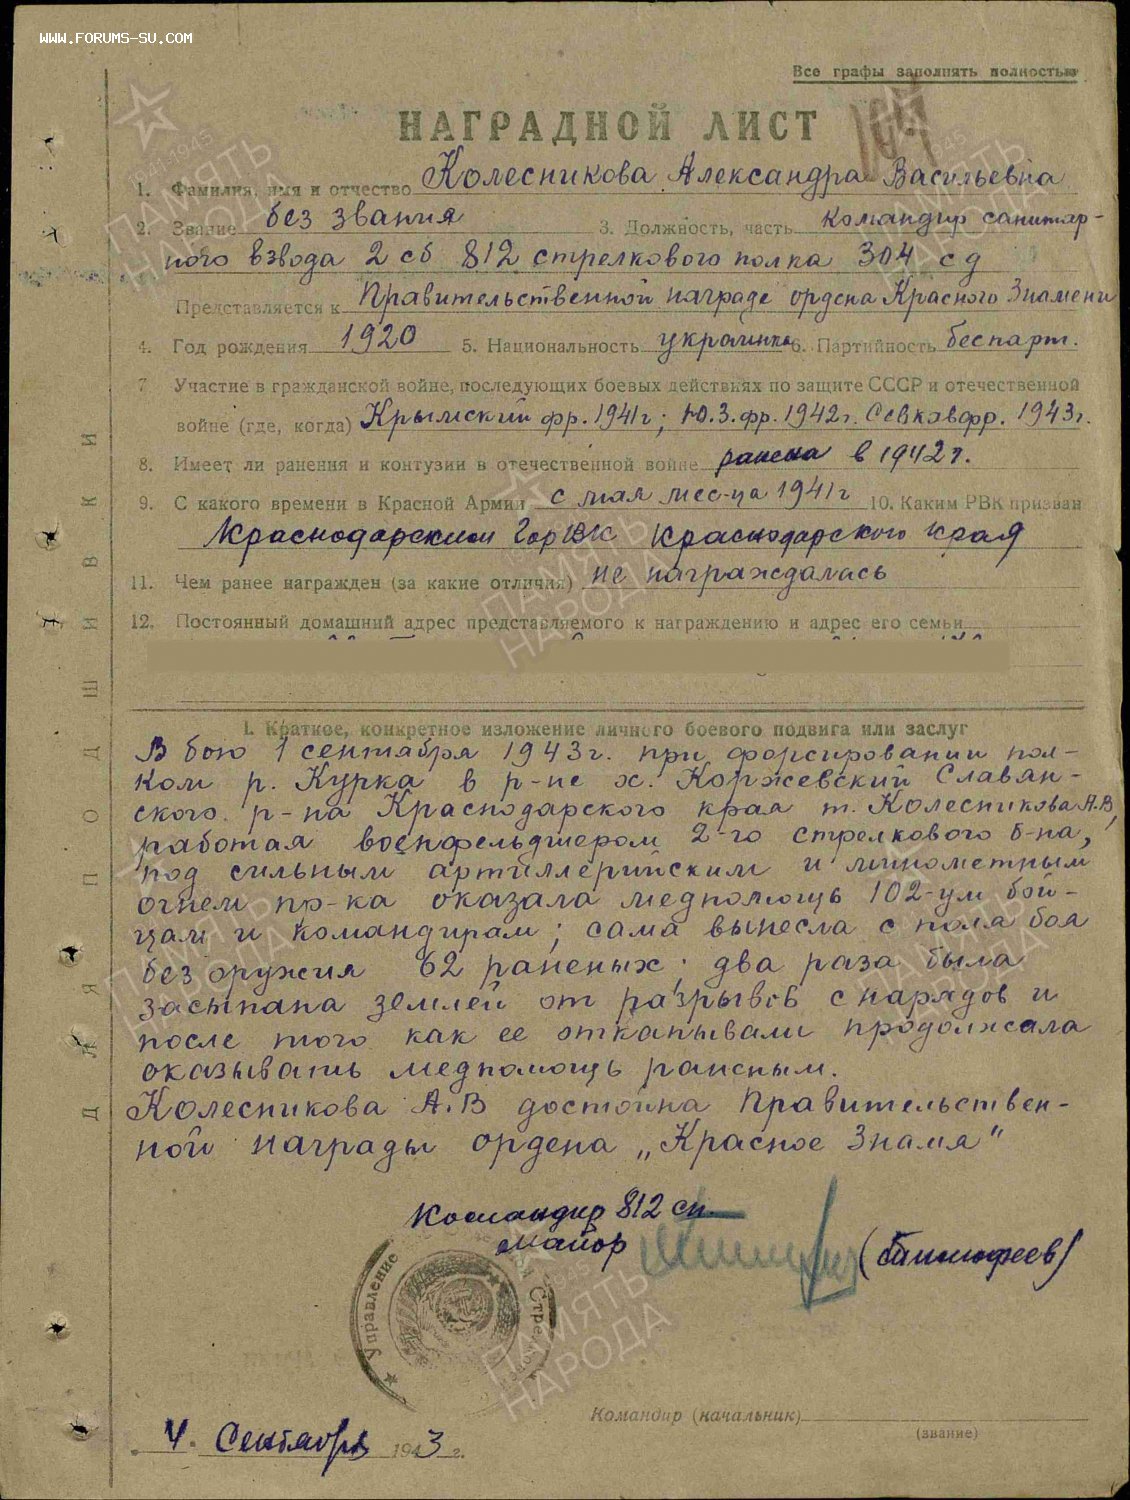 WWW.FORUMS-SU.COM
Все графы заполнять полностью
НАГРАДНОЙ ЛИСТ
1. Фамилия, имя и отчество Колесникова Александра Васильевна
2. Звание без звания 3. Должность, часть командир санитар-
ного взвода 2 сб 812 стрелкового полка 304 сд
Представляется к Правительственной награде ордена Красного Знамени
4. Год рождения 1920 5. Национальность украинка 6. Партийность беспарт.
7. Участие в гражданской войне, последующих боевых действиях по защите СССР и отечественной
войне (где, когда) Крымский фр. 1941г; Ю.З.фр. 1942г. Севкавфр. 1943г.
8. Имеет ли ранения и контузии в отечественной войне ранена в 1942г.
9. С какого времени в Красной Армии с мая мес-ца 1941г 10. Каким РВК призван
Краснодарским ГорВК Краснодарского края
11. Чем ранее награжден (за какие отличия) не награждалась
12. Постоянный домашний адрес представляемого к награждению и адрес его семьи
I. Краткое, конкретное изложение личного боевого подвига или заслуг
В бою 1 сентября 1943г. при форсировании пол-
ком р. Курка в р-не х. Коржевский Славян-
ского р-на Краснодарского края т. Колесникова А.В,
работая военфельдшером 2-го стрелкового б-на,
под сильным артиллерийским и минометным
огнем пр-ка оказала медпомощь 102-ум бой-
цам и командирам; сама вынесла с поля боя
без оружия 62 раненых; два раза была
засыпана землей от разрывов снарядов и
после того как ее откапывали продолжала
оказывать медпомощь раненым.
Колесникова А.В достойна Правительствен-
ной награды ордена „Красное Знамя"
Командир 812 сп.
Майор (Тимофеев)
Управление Стрелков
4. Сентября 1943 г.
Командир (начальник)
(звание)
ДЛЯ ПОДШИВКИ
ПАМЯТЬ НАРОДА